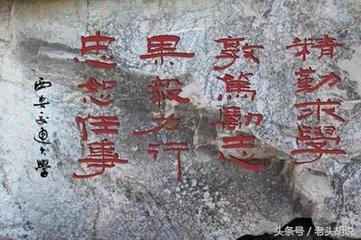 精勤求學
敦篤勵志
果毅力行
忠恕任事
西安交通大學
头条号／老头胡说